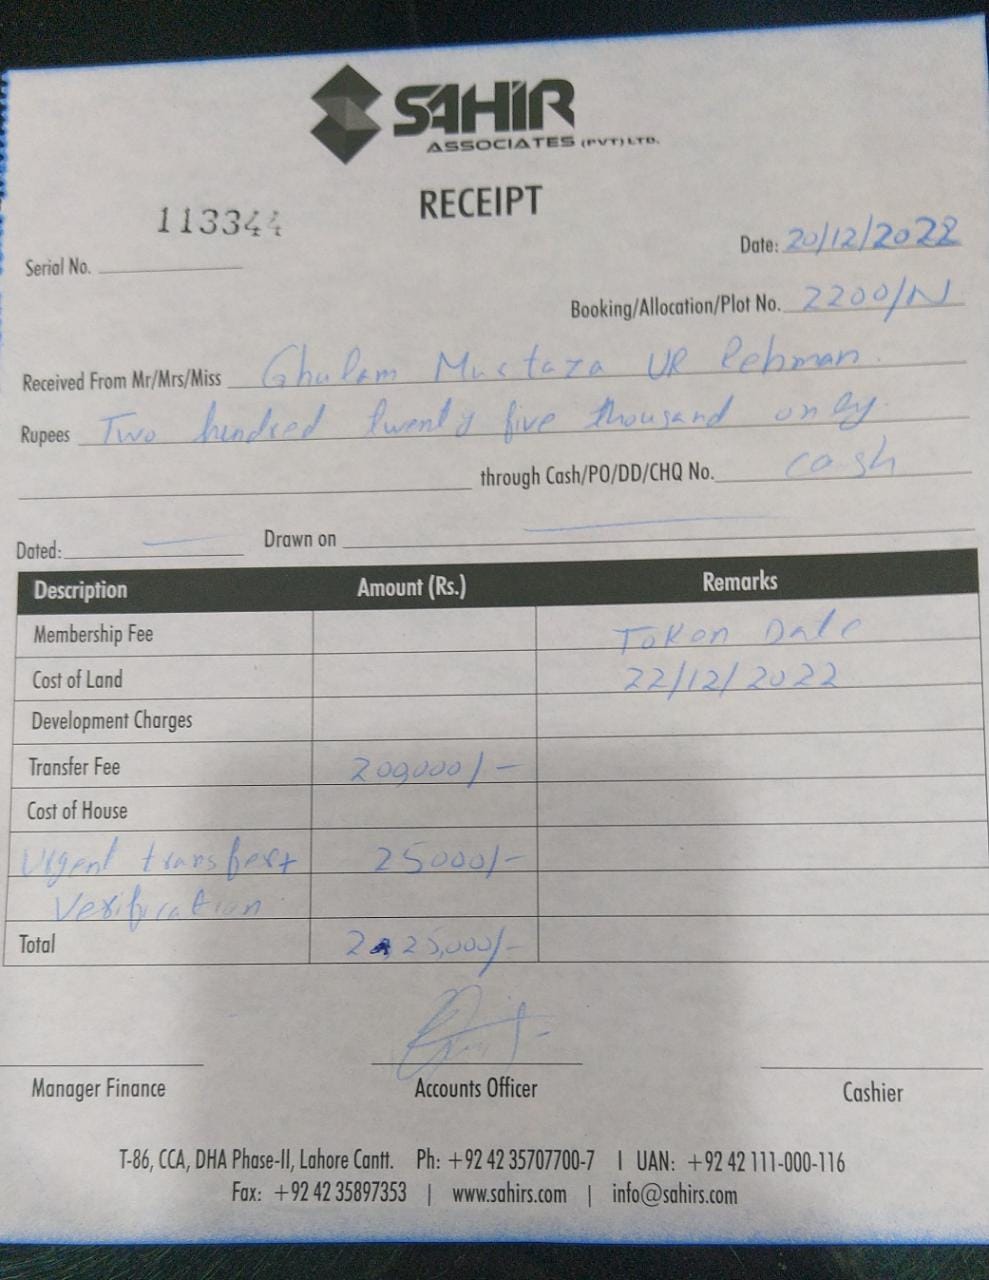 SAHIR
ASSOCIATES (PVT) LTD.
RECEIPT
113344
Serial No.
Date: 20/12/2022
Booking/Allocation/Plot No. 2200/N
Received From Mr/Mrs/Miss Ghulam Mustaza UR Rehman.
Rupees Two hundred twenty five thousand only.
through Cash/PO/DD/CHQ No. cash
Dated: — Drawn on —
Description Amount (Rs.) Remarks
Membership Fee Token Date
Cost of Land 22/12/2022
Development Charges
Transfer Fee 200,000/-
Cost of House
Urgent transfer+ 25000/-
Verification
Total 225,000/-
Manager Finance Accounts Officer Cashier
T-86, CCA, DHA Phase-II, Lahore Cantt. Ph: +92 42 35707700-7 | UAN: +92 42 111-000-116
Fax: +92 42 35897353 | www.sahirs.com | info@sahirs.com